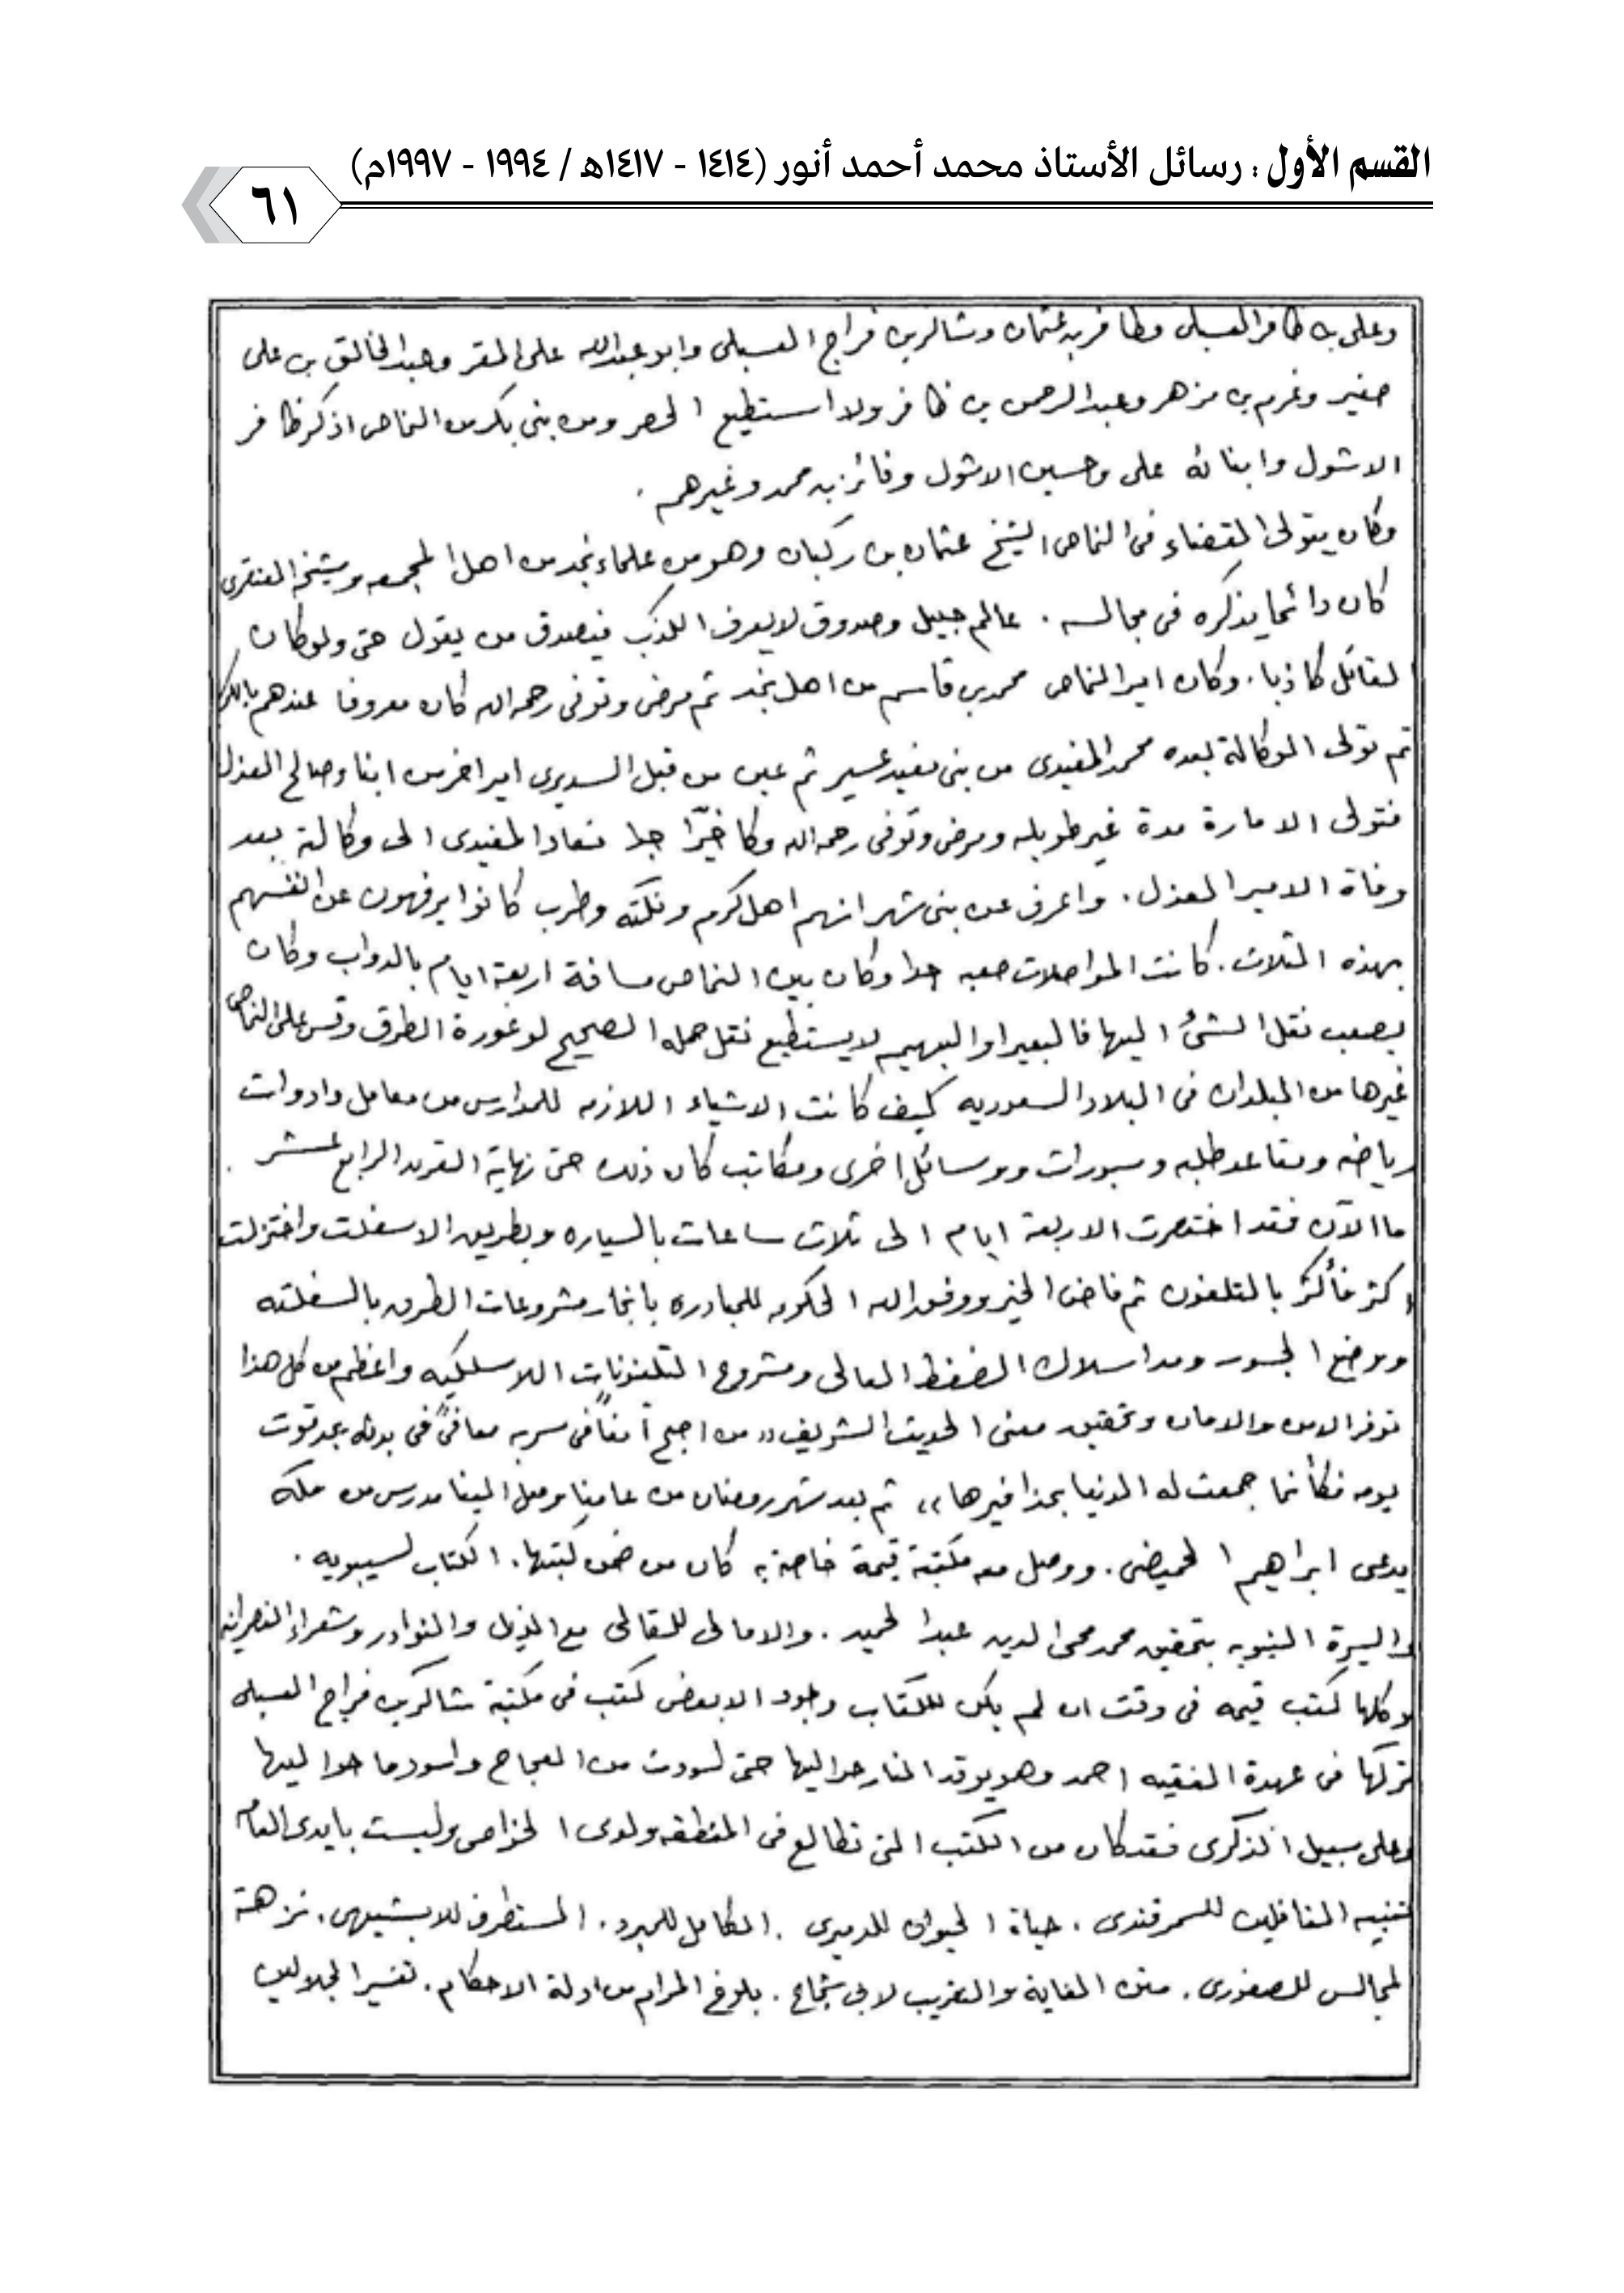 القسم الأول : رسائل الأستاذ محمد أحمد أنور (١٤١٤ - ١٤١٧هـ / ١٩٩٤ - ١٩٩٧م)
٦١
وعلى بن ظافر العسبلى وظافر بن عثمان وشاكر بن فراج العسبلى وابو عبدالله على المقر وعبدالخالق بن على
صغير وغرم بن مزهر وعبدالرحمن بن ظافر ولا استطيع الحصر ومن بنى بكر من النماص اذكر ظافر
الاشول وابنائه على وحسين الاشول وفائز بن محمد وغيرهم .
وكان يتولى القضاء فى النماص الشيخ عثمان بن ركبان وهو من علماء نجد من اهل المجمعه وشيخه العنقرى
كان دائما يذكره فى مجالسه . عالم جليل وصدوق لا يعرف الكذب فيصدق من يقول حتى ولو كان
القائل كاذبا . وكان امير النماص محمد بن قاسم من اهل نجد ثم مرض وتوفى رحمه الله كان معروفا عندهم
ثم تولى الوكالة بعده محمد المفيدى من بنى مفيد عسير ثم عين من قبل السديرى امير اخر من ابنا وصالح العذل
فتولى الامارة مدة غير طويله ومرض وتوفى رحمه الله وكا خيّرا جدا فعاد المفيدى الى وكالة بعد
وفاة الامير العذل . واعرف عن بنى شهر انهم اهل كرم ونكته وطرب كانوا يرفهون عن انفسهم
بهذه الثلاث . كانت المواصلات صعبه جدا وكان بين النماص مسافة اربعة ايام بالدواب وكان
يصعب نقل الشئ اليها فالبعير او البهيمه لا يستطيع نقل حمله الصحيح لوعورة الطرق وقس على النماص
غيرها من البلدان فى البلاد السعوديه كيف كانت الاشياء اللازمه للمدارس من معامل وادوات
رياضه ومقاعد طلبه وسبورات ووسائل اخرى ومكاتب كان ذلك حتى نهاية القرن الرابع عشر .
ما الآن فقد اختصرت الاربعة ايام الى ثلاث ساعات بالسياره وبطريق الاسفلت واختزلت
اكثر فأكثر بالتلفون ثم فاض الخير ووفق الله الحكومه للمبادره بانجاز مشروعات الطرق بالسفلته
ووضع الجسور ومد اسلاك الضغط العالى ومشروع التلفونات اللاسلكيه واعظم من كل هذا
توفر الامن والامان وتحقيق معنى الحديث الشريف «من اصبح آمناً فى سربه معافىً فى بدنه يجد قوت
يومه فكأنما جمعت له الدنيا بحذافيرها» ثم بعد شهر رمضان من عامنا وصل الينا مدرس من مكه
يدعى ابراهيم الحميضى . ووصل معه مكتبة قيمة خاصة به كان من ضمن كتبها . الكتاب لسيبويه .
والسيرة النبويه بتحقيق محمد محى الدين عبدالحميد . والامالى للقالى مع الذيل والنوادر وشعراء النصرانيه
وكلها كتب قيمه فى وقت ان لم يكن للكتاب وجود الا بعض كتب فى مكتبة شاكر بن فراج العسبلى
تركها فى عهدة الفقيه احمد وهو يوقد النار حواليها حتى اسودت من العجاج واسود ما حواليها
وعلى سبيل الذكرى فقد كان من الكتب التى تطالع فى المنطقه ولدى الخواص وليست بايدى العام
تنبيه الغافلين للسمرقندى . حياة الحيوان للدميرى . الكامل للمبرد . المستطرف للابشيهى . نزهة
المجالس للصفورى . متن الغاية والتقريب لابى شجاع . بلوغ المرام من ادلة الاحكام . تفسير الجلالين